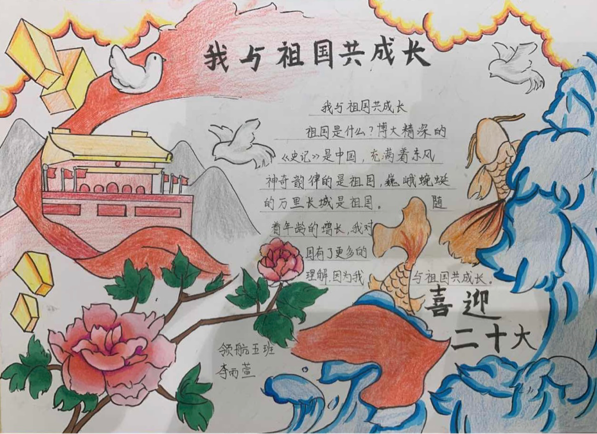 我与祖国共成长
我与祖国共成长
祖国是什么?博大精深的
《史记》是中国,充满着东风
神奇韵律的是祖国,巍峨蜿蜒
的万里长城是祖国。 随
着年龄的增长,我对
国有了更多的
理解,因为我 与祖国共成长。
喜迎
二十大
领航五班
李雨萱